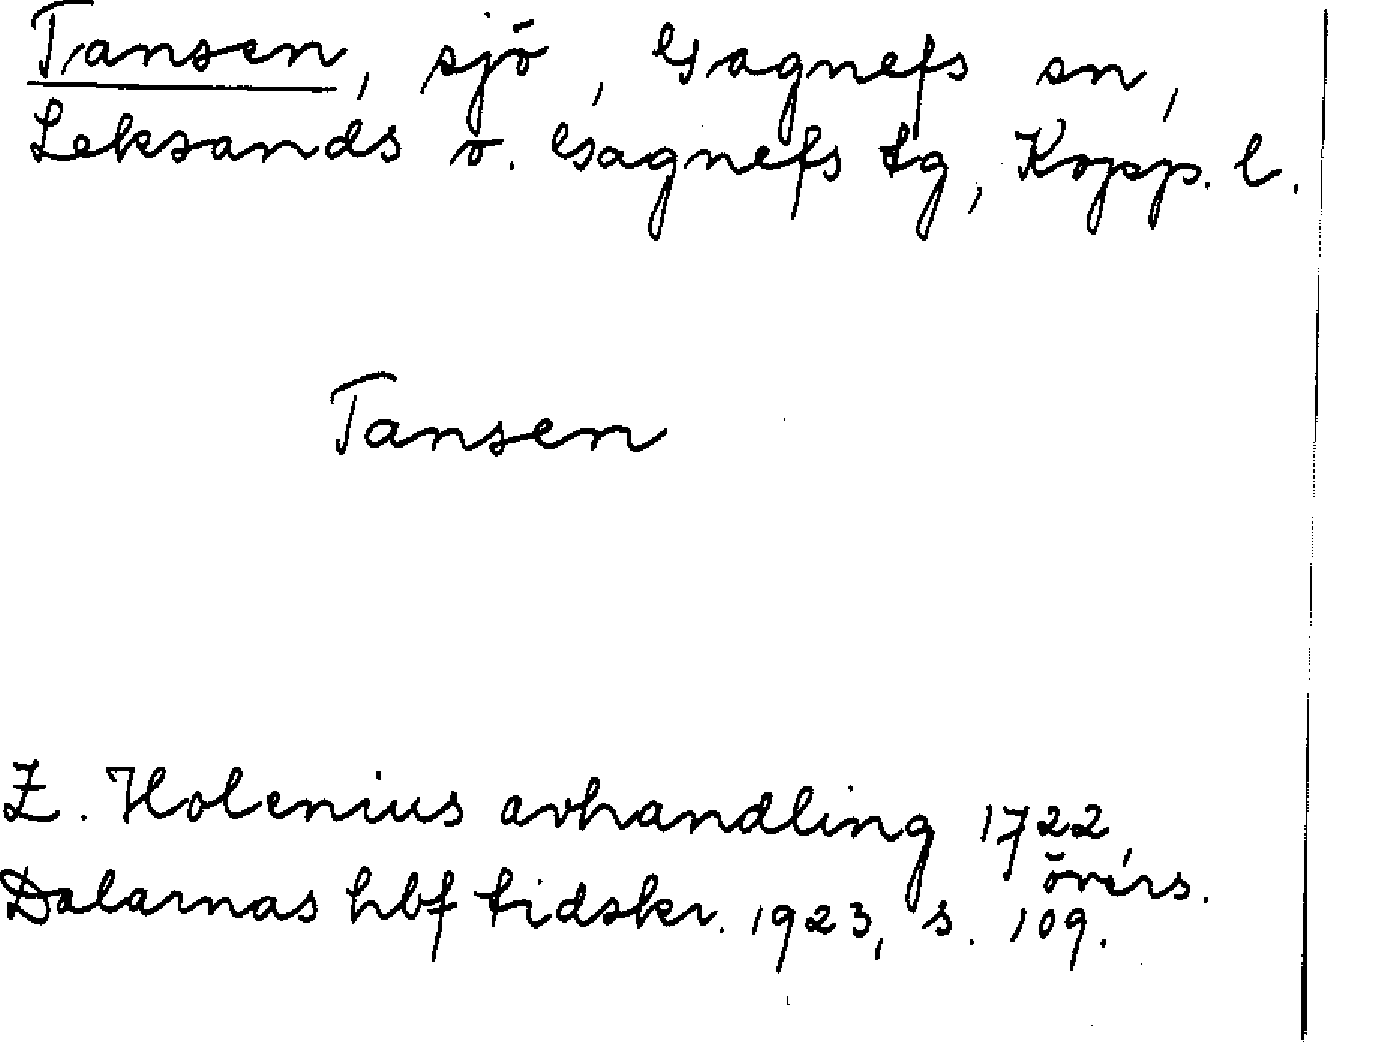 Tansen, sjö, Gagnefs sn,
Leksands o. Gagnefs tg, Kopp. l.
Tansen
Z. Holenius avhandling 1722,
övers.
Dalarnas hbf tidskr. 1923, s. 109.